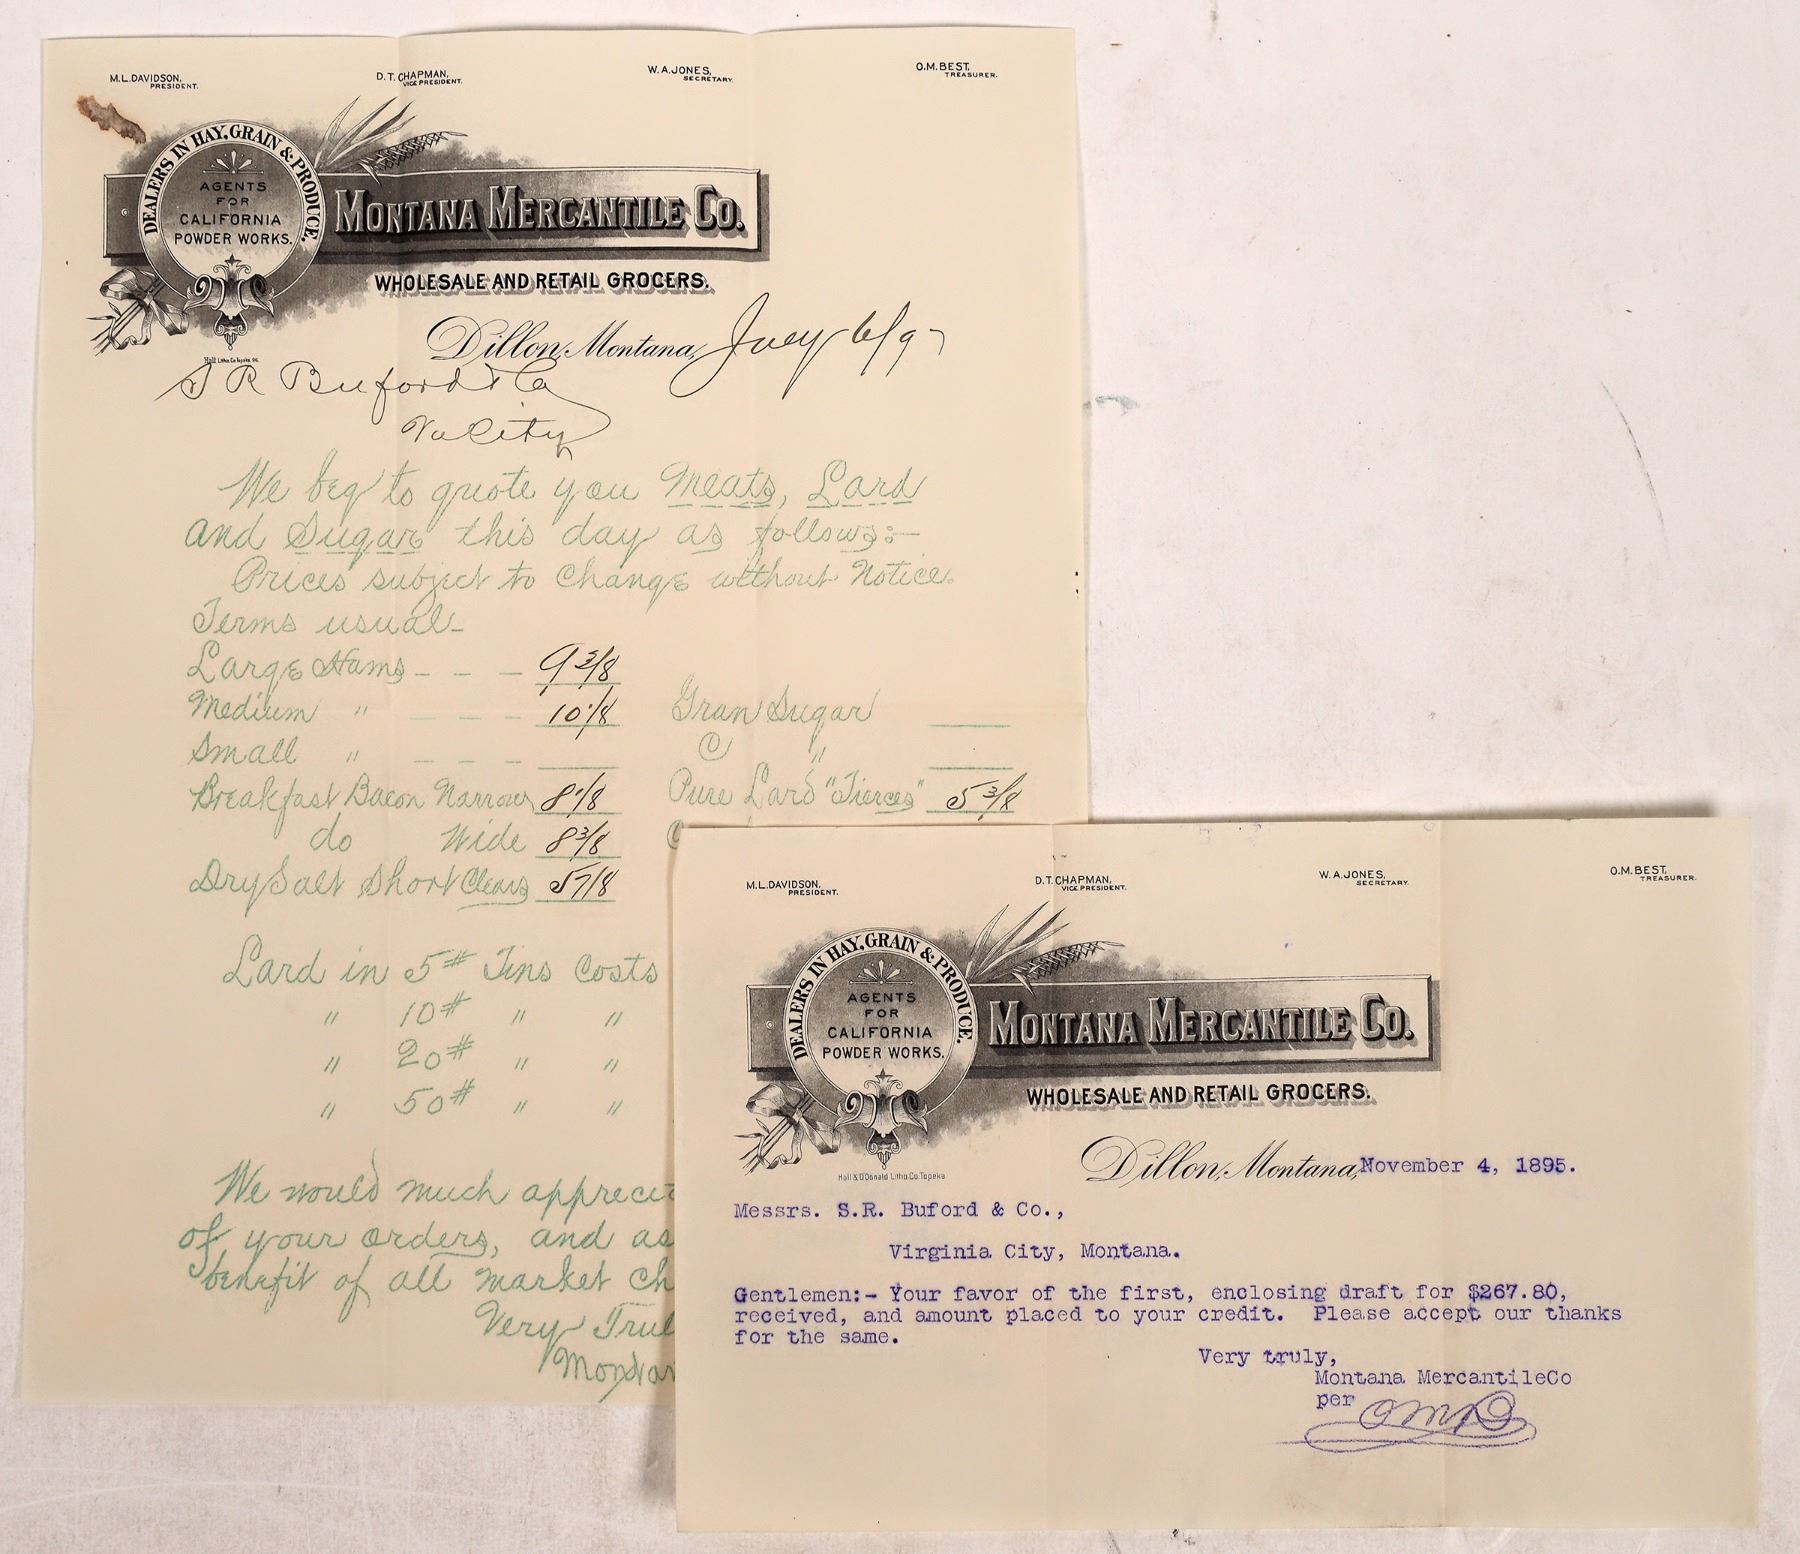 M.L. DAVIDSON, PRESIDENT.
D.T. CHAPMAN, VICE PRESIDENT.
W.A. JONES, SECRETARY.
O.M. BEST, TREASURER.
DEALERS IN HAY, GRAIN & PRODUCE.
AGENTS
FOR
CALIFORNIA
POWDER WORKS.
MONTANA MERCANTILE CO.
WHOLESALE AND RETAIL GROCERS.
Dillon, Montana, July 6/97
S R Buford & Co
Va City
We beg to quote you Meats, Lard
and Sugar this day as follows:-
Prices subject to Change without Notice.
Terms usual-
Large Hams - - - 9 3/8
Medium " - - - 10 1/8
Small " - - -
Breakfast Bacon Narrow 8 1/8
do Wide 8 3/8
Dry Salt Short Clears 5 7/8
Gran Sugar
C "
Pure Lard "Tierces" 5 3/8
Lard in 5# Tins Costs
" 10# " "
" 20# " "
" 50# " "
We would much appreci
of your orders, and as
benefit of all market ch
Very Trul
Montan
M.L. DAVIDSON, PRESIDENT.
D.T. CHAPMAN, VICE PRESIDENT.
W.A. JONES, SECRETARY.
O.M. BEST, TREASURER.
DEALERS IN HAY, GRAIN & PRODUCE.
AGENTS
FOR
CALIFORNIA
POWDER WORKS.
MONTANA MERCANTILE CO.
WHOLESALE AND RETAIL GROCERS.
Hall & O'Donald Litho. Co. Topeka
Dillon, Montana, November 4, 1895.
Messrs. S.R. Buford & Co.,
Virginia City, Montana.
Gentlemen:- Your favor of the first, enclosing draft for $267.80,
received, and amount placed to your credit. Please accept our thanks
for the same.
Very truly,
Montana MercantileCo
per OMB